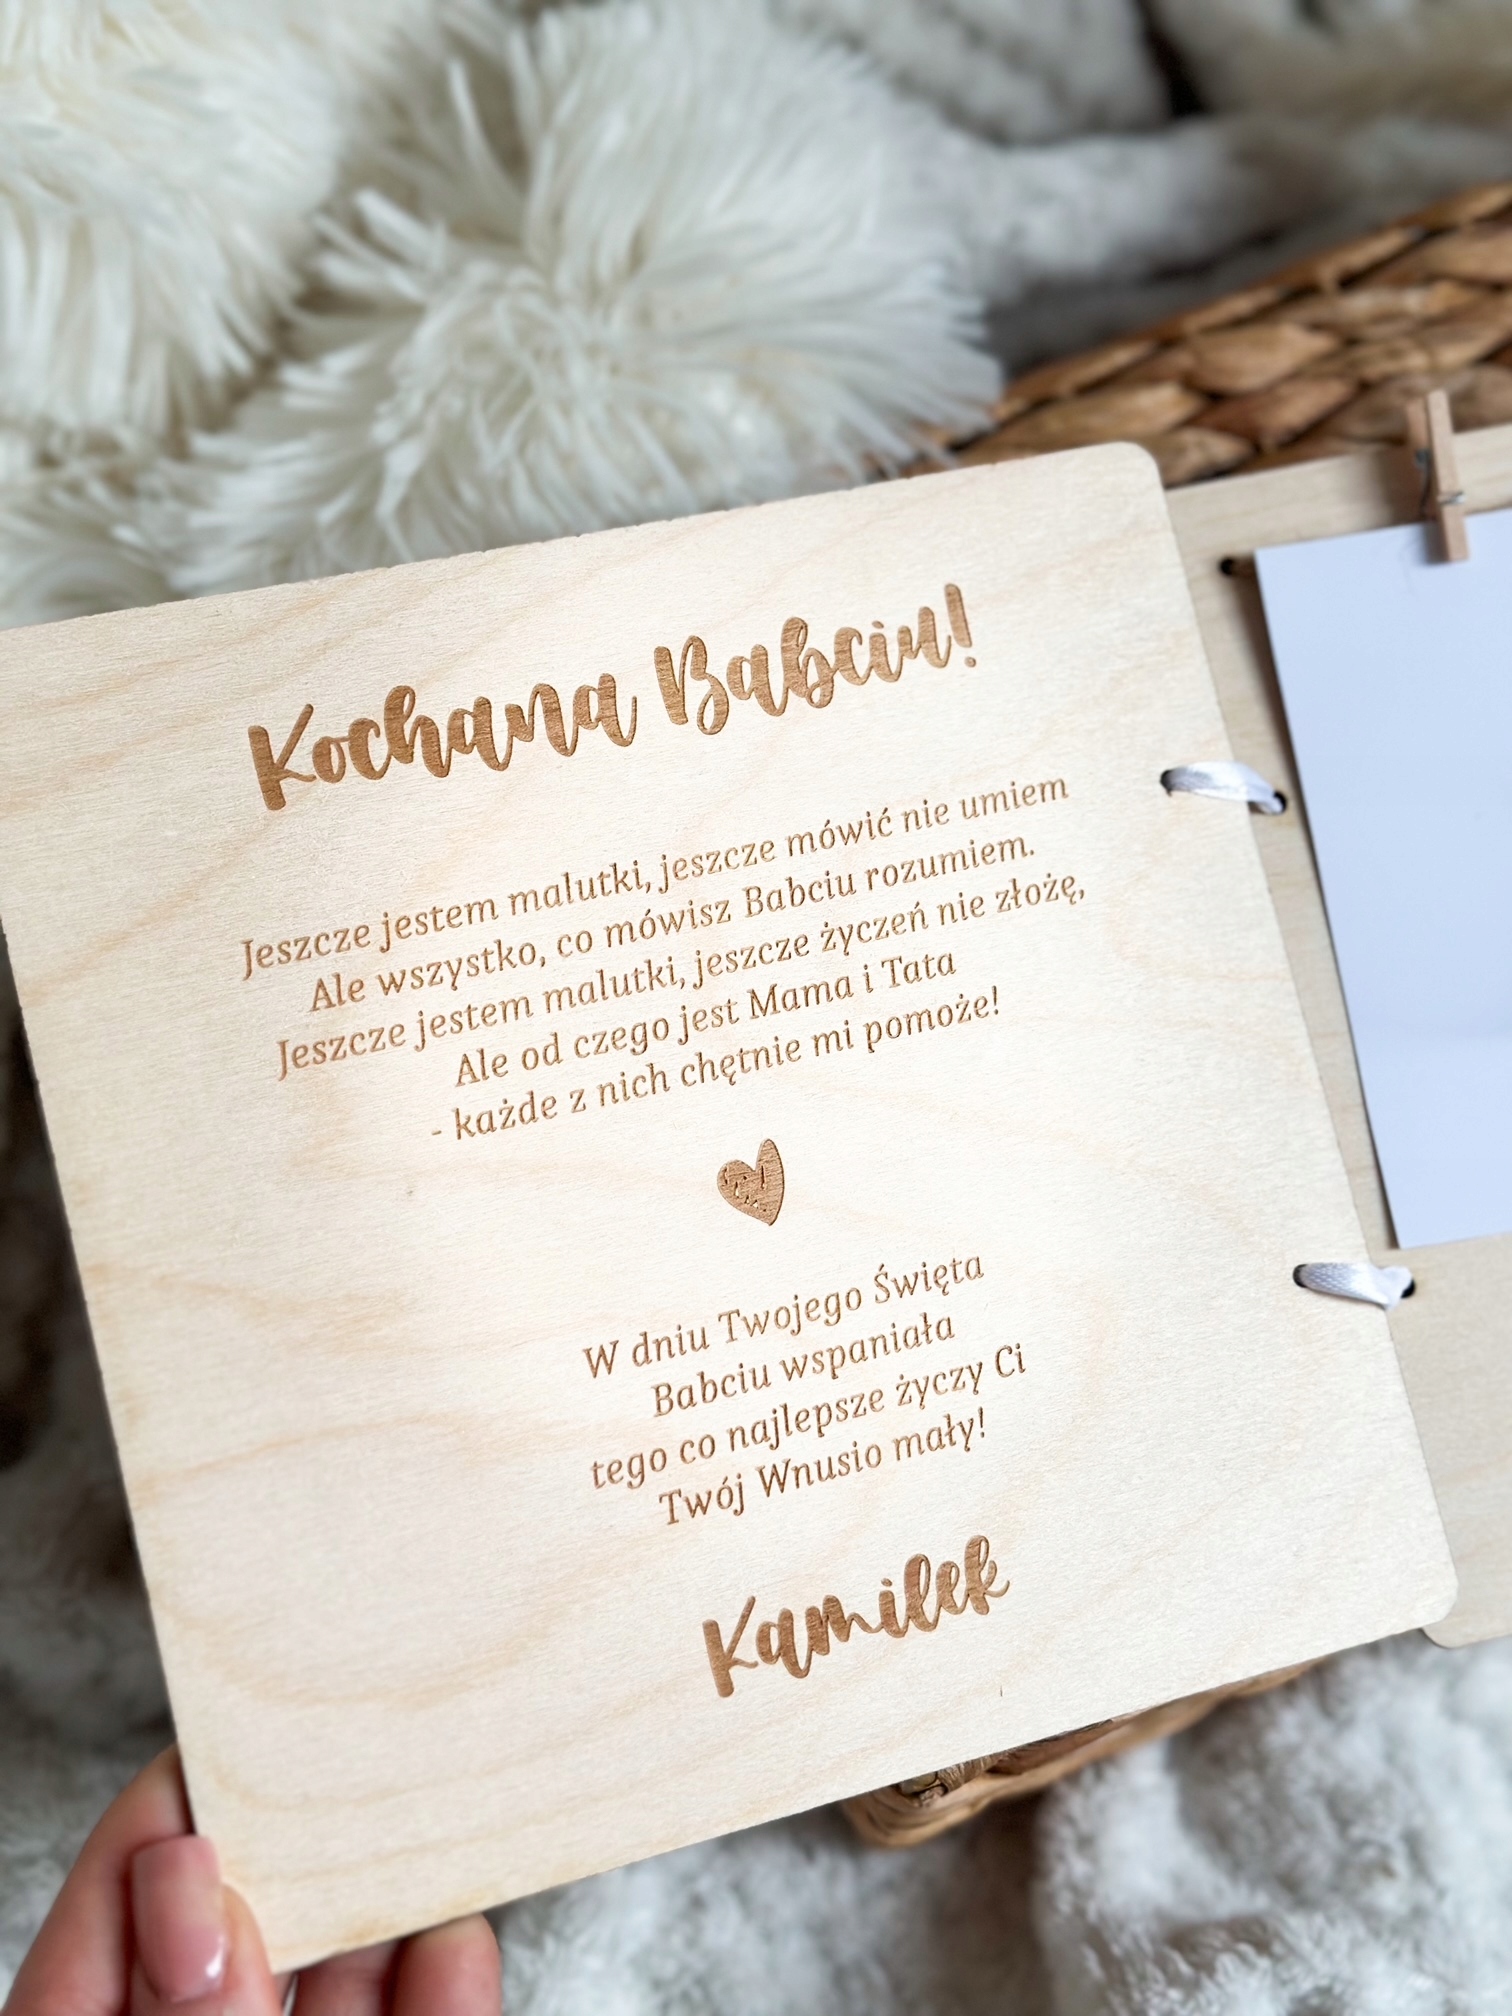 Kochana Babciu!
Jeszcze jestem malutki, jeszcze mówić nie umiem
Ale wszystko, co mówisz Babciu rozumiem.
Jeszcze jestem malutki, jeszcze życzeń nie złożę,
Ale od czego jest Mama i Tata
- każde z nich chętnie mi pomoże!
W dniu Twojego Święta
Babciu wspaniała
tego co najlepsze życzy Ci
Twój Wnusio mały!
Kamilek